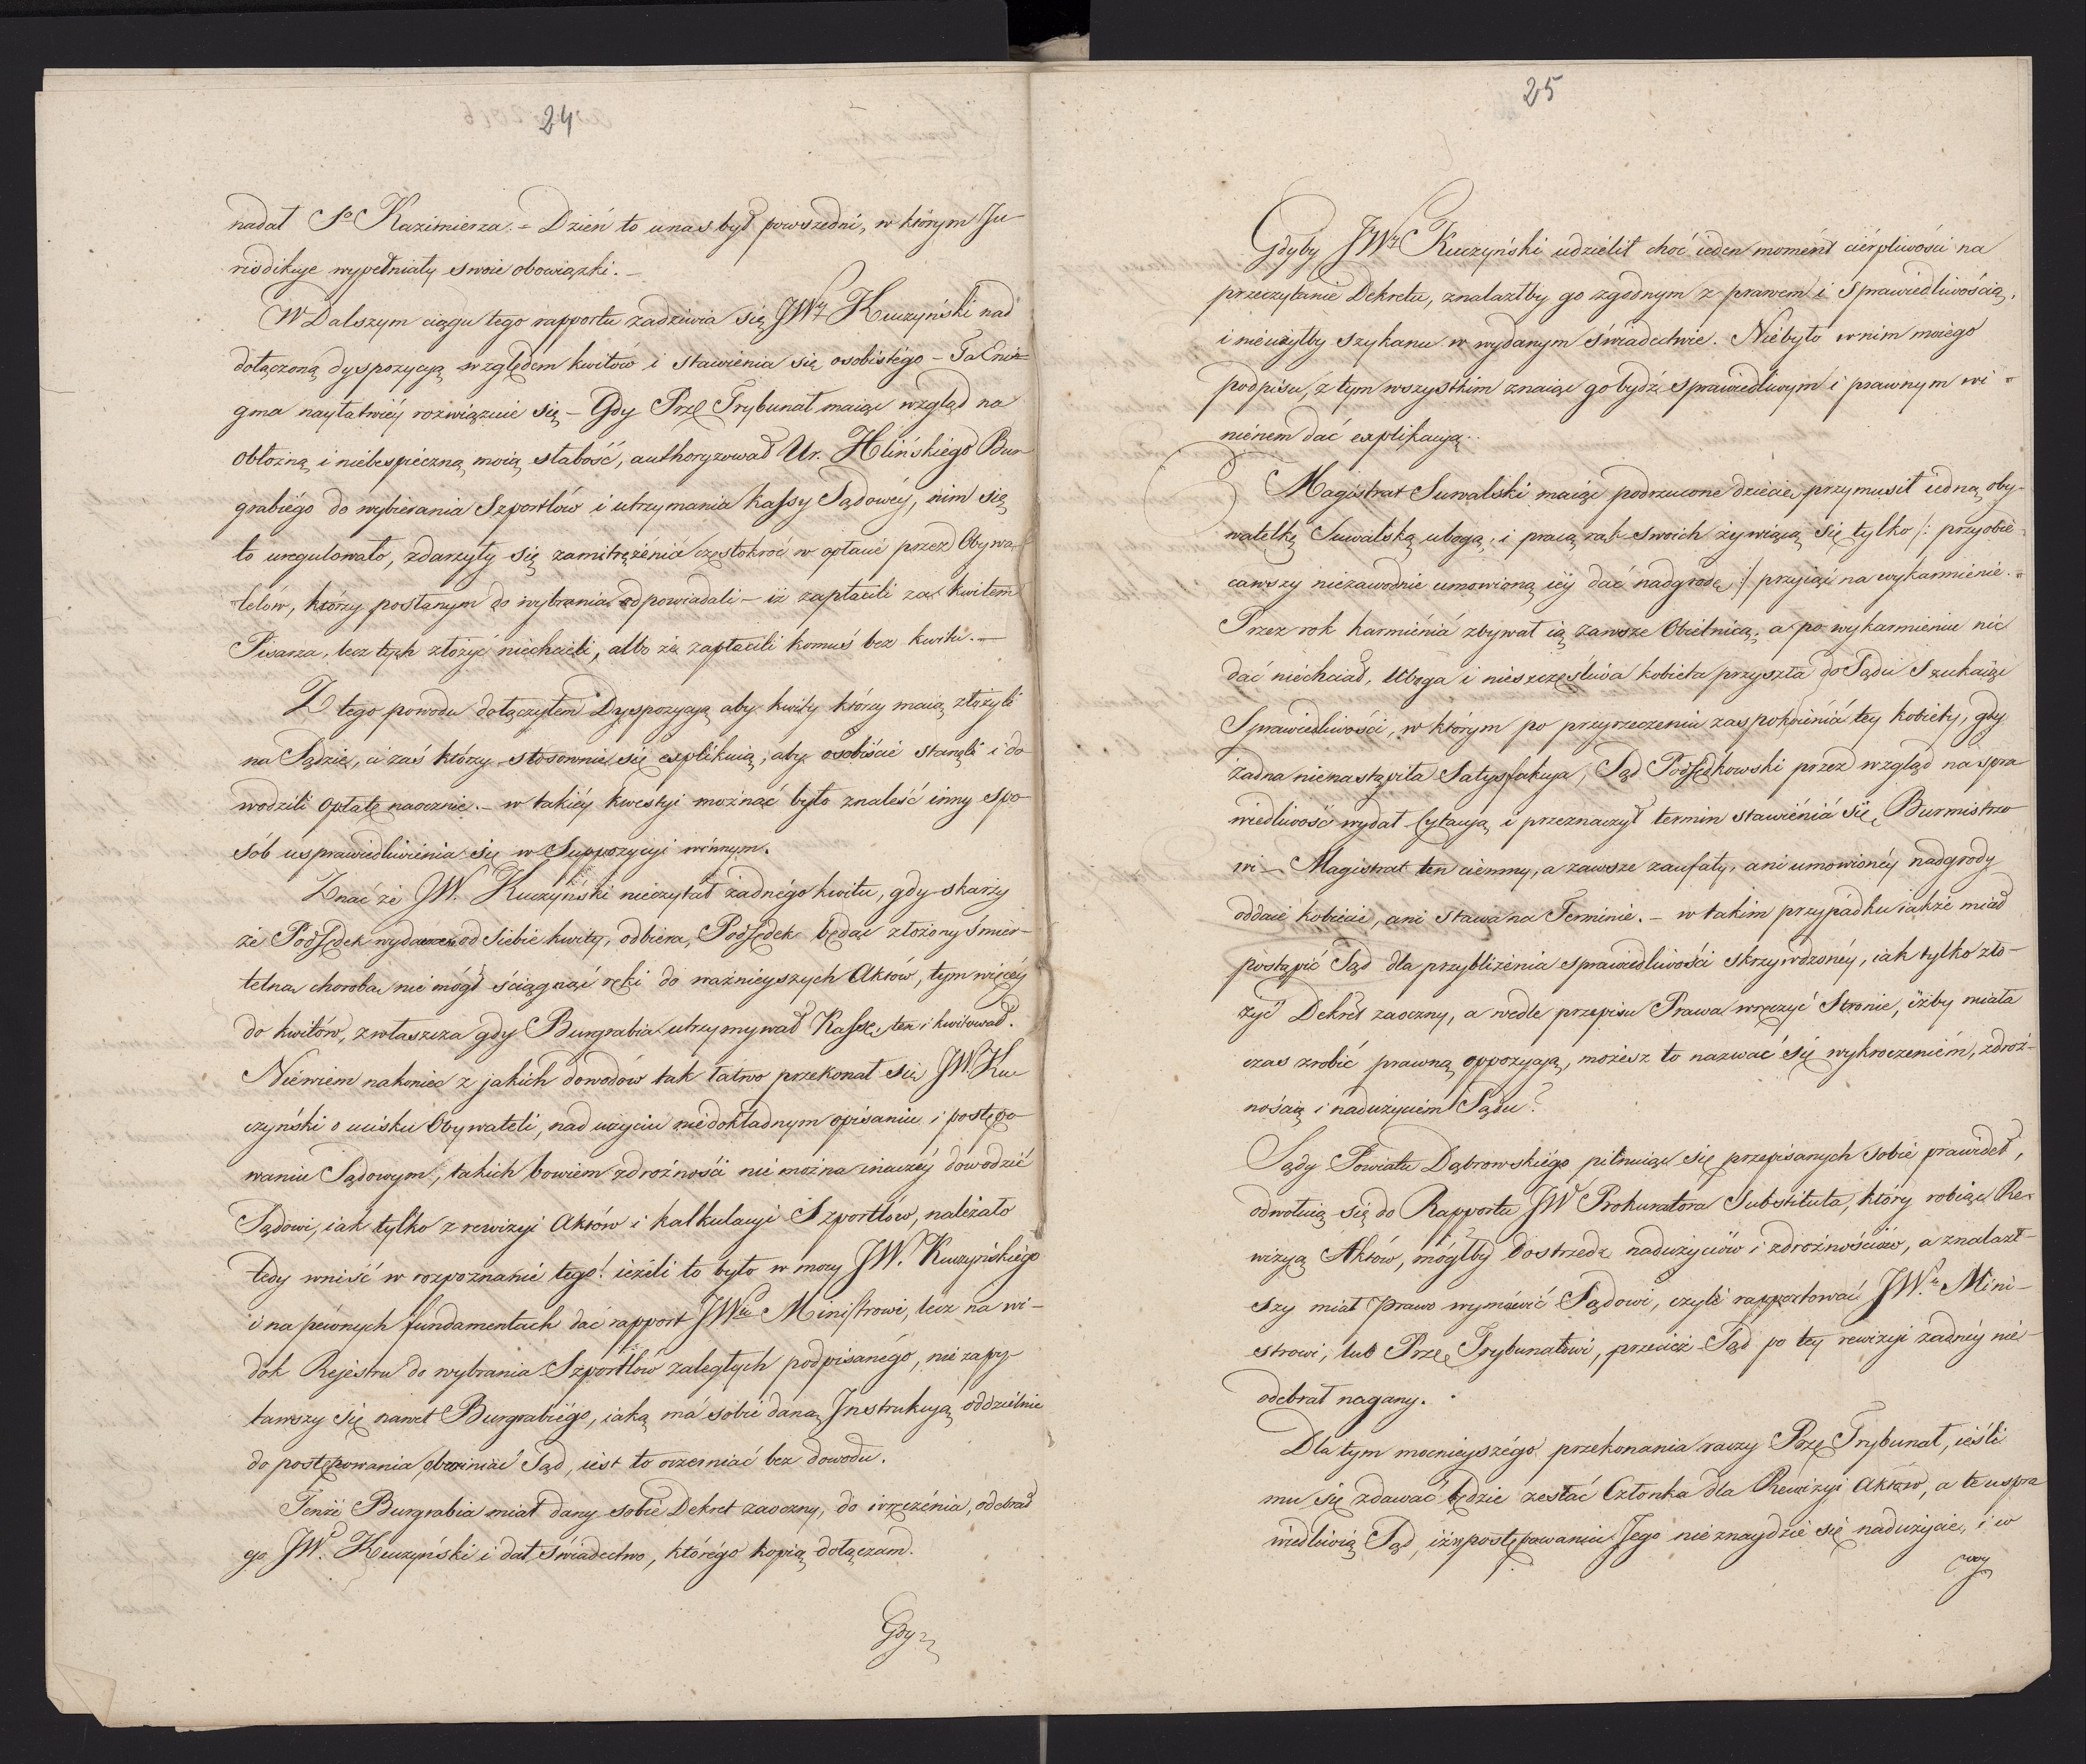 24
nadał So Kazimierza. - Dzień to u nas był powszedni, w którym Ju-
risdikcye wypełniały swoie obowiązki. -
W Dalszym ciągu tego rapportu zadziwia się JWy Kuczyński nad
dołączoną dyspozycyą względem kwitów i stawienia się osobistego - Ta Enig-
gma nayłatwiéy rozwiązuie się - Gdy Prze Trybunał maiąc wzgląd na
obłożną i niebespieczną moią słabość, authoryzował Ur. Hlińskiego Bur-
grabiego do wybierania Szportlów i utrzymania Kassy Sądowéy, nim się
to uregulowało, zdarzyły się zamitrężenia częstokroć w opłacie przez Obywa-
telów, którzy posłanym do wybrania odpowiadali - iż zapłacili za kwitem
Pisarza, lecz tych złożyć niechcieli, albo że zapłacili komuś bez kwitu. -
Z tego powodu dołączyłem Dyspozycyą aby kwity którzy maią złożyli
na Sądzie, ci zaś którzy stosownie się explikuią, aby osobiście stanęli i do
wodzili opłatę naocznie. - w takiéy kwestyi możnaż było znaleść inny spo-
sób usprawiedliwienia się w Suppozycyi winnym.
Znać że JW. Kuczyński nieczytał żadnego kwitu, gdy skarży
że Podsędek wydawane od Siebie kwity, odbiera, Podsędek będąc złożony śmier-
telną chorobą nie mógł ściągnąć ręki do ważnieyszych Aktów, tym więcéy
do kwitów, zwłaszcza gdy Burgrabia utrzymywał Kassę, ten i kwitował.
Niewiem nakoniec z jakich dowodów tak łatwo przekonał się JW. Ku-
czyński o ucisku Obywateli, nad użyciu niedokładnym opisaniu i postępo-
waniu Sądowym, takich bowiem zdrożności nie można inaczéy dowodzić
Sądowi, iak tylko z rewizyi Aktów i kalkulacyi Szportlów, należało
tedy wniść w rozpoznanie tego! ieżeli to było w mocy JW. Kuczyńskiego
i na pewnych fundamentach dać rapport JWu Ministrowi, lecz na wi-
dok Rejestru do wybrania Szportlów zaległych podpisanego, nie zapy-
tawszy się nawet Burgrabiego, iaką ma sobie daną Instrukcyą oddzielnie
do postępowania obwiniać Sąd, iest to oczerniać bez dowodu.
Tenże Burgrabia miał dany sobie Dekret zaoczny, do wręczenia, odebrał
go JW. Kuczyński i dał świadectwo, którego kopią dołączam.
Gdy
25
Gdyby JWy Kuczyński udzielił choć ieden momént cierpliwości na
przeczytanie Dekretu, znalazłby go zgodnym z prawem i Sprawiedliwością,
i nieużyłby szykanu w wydanym świadectwie. Niebyło w nim moiego
podpisu, z tym wszystkim znaiąc go bydź sprawiedliwym i prawnym wi-
nienem dać explikacyą.
Magistrat Suwalski maiąc podrzucone dziecie, przymusił iedną oby-
watelkę Suwalską ubogą, i pracą rąk swoich żywiącą się tylko /: przyobie-
cawszy niezawodnie umowioną iéy dać nadgrodę :/ przyiąć na wykarmienie.
Przez rok karmienia zbywał ią zawsze Obietnicą, a po wykarmieniu nic
dać niechciał, Uboga i nieszczęśliwa kobieta przyszła do Sądu szukaiąc
Sprawiedliwości, w którym po przyrzeczeniu zaspokoienia tey kobiety, gdy
żadna nienastąpiła Satysfakcya, Sąd Podsędkowski przez wzgląd na spra
wiedliwość wydał Cytacyą i przeznaczył termin stawienia się Burmistrzo
wi - Magistrat ten ciemny, a zawsze zaufały, ani umowionéy nadgrody
oddaie kobiecie, ani stawa na Terminie. - w takim przypadku iakże miał
postąpić Sąd dla przybliżenia sprawiedliwości skrzywdzonéy, iak tylko zło-
żyć Dekret zaoczny, a wedle przepisu Prawa wręczyć Stronie, iżby miała
czas zrobić prawną oppozycyą, możesz to nazwać się wykroczeniem, zdroż-
nością i nadużyciem Sądu?
Sądy Powiatu Dąbrowskiego pilnuiąc się przepisanych sobie prawideł,
odwołuią się do Rapportu JW Prokuratora Substituta, który robiąc Re-
wizyą Aktów, mógłby dostrzedz nadużyciów i zdrożnościów, a znalazł-
szy miał prawo wymówić Sądowi, czyli rapportować JWu Mini-
strowi, lub Prze Trybunałowi, przecież Sąd po tey rewizyi żadnéy nie-
odebrał nagany.
Dla tym mocnieyszégo przekonania raczy Prze Trybunał, ieśli
mu się zdawać będzie zesłać Członka dla Rewizyi Aktów, a te uspra
wiedliwią Sąd, iż w postępowaniu Jego nie znaydzie się nadużycie, i w